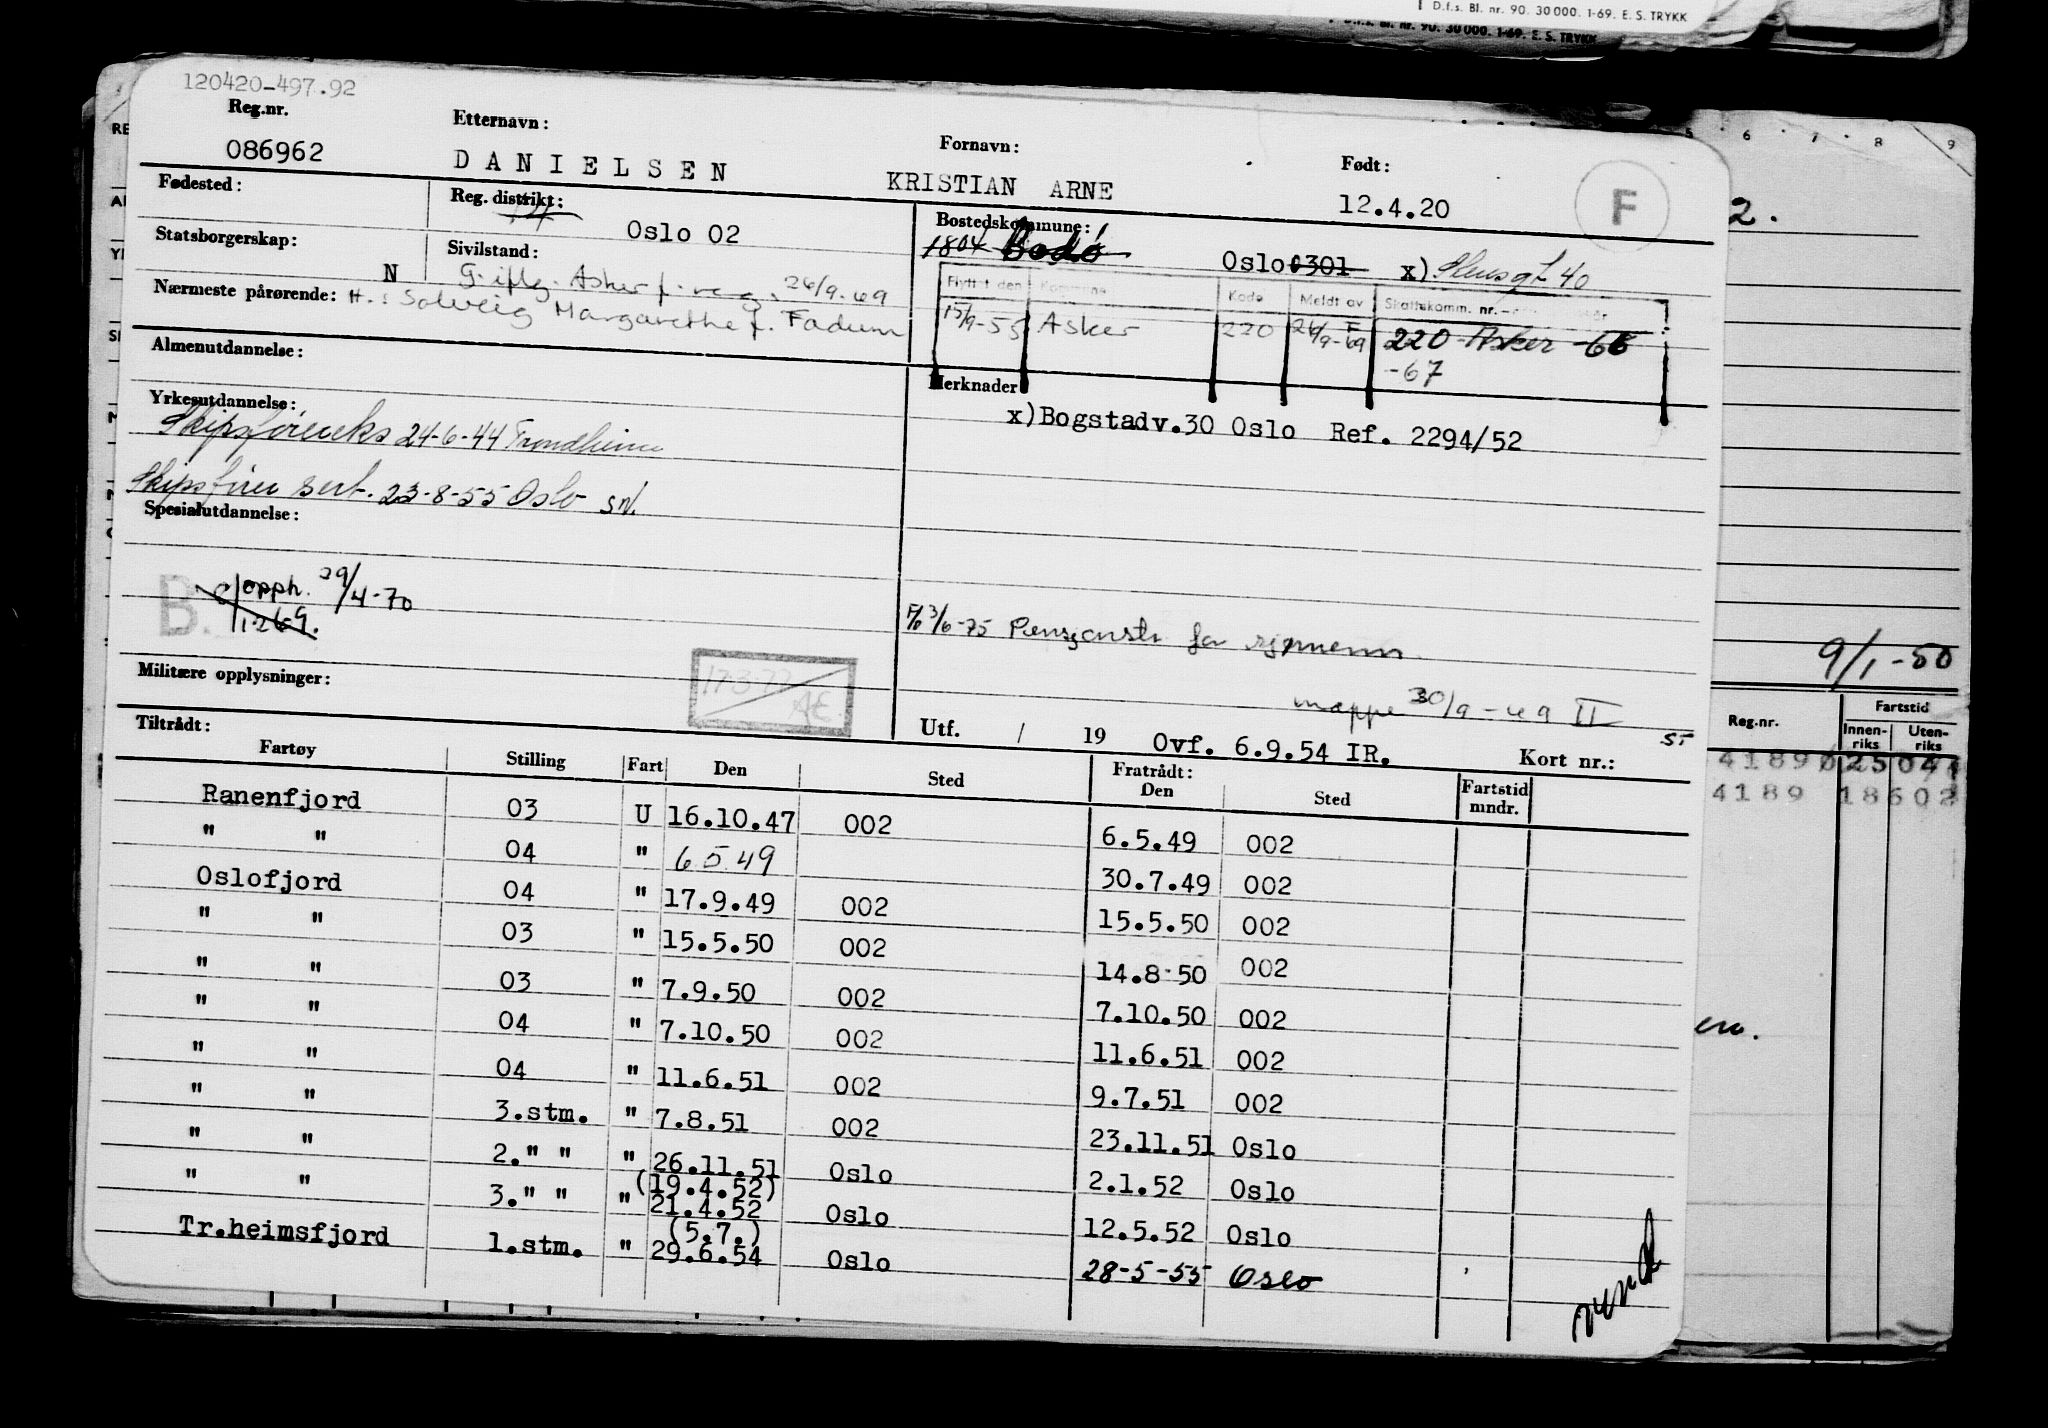 D.f.s. Bl. nr. 90. 30 000. 1-69. E. S. TRYKK
D.f.s. Bl. nr. 90. 30 000. 1-69. E. S. TRYKK
120420-497.92
Reg.nr. Etternavn: Fornavn: Født:
086962 DANIELSEN KRISTIAN ARNE 12.4.20 F
Fødested: Reg. distrikt: Oslo 02 Bostedskommune:
1804 Bodø Oslo 0301 x)
Statsborgerskap: N Sivilstand: G. iflg. Asker f. reg. 26/9-69
Nærmeste pårørende: H.: Solveig Margarethe f. Fadum
Flyttet den Kommune Kode Meldt av Skattekomm. nr.
15/9-55 Asker 220 26/9-69 F 220 Asker -66
-67
Almenutdannelse:
Merknader
x)Bogstadv.30 Oslo Ref. 2294/52
Yrkesutdannelse:
Skipsførereks 24-6-44 Trondheim
Skipsfører sert. 23-8-55 Oslo
Spesialutdannelse:
B. opph. 29/4-70
F/6 3/6-75 Pensjonstr for sjømenn
Militære opplysninger:
17.3.77
AE
mappe 30/9-69 II
Tiltrådt: Utf. / 19 Ovf. 6.9.54 IR. Kort nr.:
Fartøy Stilling Fart Den Sted Fratrådt: Den Sted Fartstid mndr.
Ranenfjord 03 U 16.10.47 002 6.5.49 002
" " 04 " 6.5.49 30.7.49 002
Oslofjord 04 " 17.9.49 002 15.5.50 002
" " 03 " 15.5.50 002 14.8.50 002
" " 03 " 7.9.50 002 7.10.50 002
" " 04 " 7.10.50 002 11.6.51 002
" " 04 " 11.6.51 002 9.7.51 002
" " 3.stm. " 7.8.51 002 23.11.51 Oslo
" " 2." " " 26.11.51 Oslo 2.1.52 Oslo
" " 3." " " (19.4.52) 21.4.52 Oslo 12.5.52 Oslo
Tr.heimsfjord 1.stm. " (5.7.) 29.6.54 Oslo 28-5-55 Oslo
vend
5 6 7 8 9
2.
9/1-50
Reg.nr. Fartstid
Innen-riks Uten-riks
4189
4189 18602